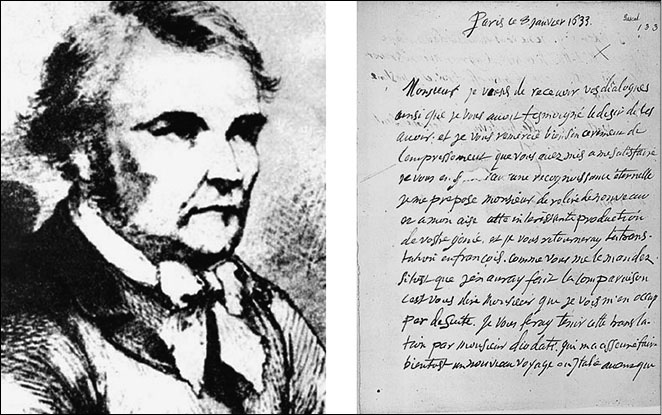 Paris le 3 janvier 1633.
Pascal
133
Monsieur je viens de recevoir vos dialogues
ainsi que je vous avois tesmoigné le desir de les
avoir. et je vous remercie bien sincerement de
l'empressement que vous avez mis a me satisfaire
je vous en une recognoissance éternelle
je me propose monsieur de relire de nouveau
et a mon aise cette interissante production
de vostre génie. et je vous retourneray la trans-
lation en françois. comme vous me le mandez.
sitost que j'en auray fait la comparaison
c'est vous dire Monsieur que je vois m'en occup
par de suitte. Je vous feray tenir cette transla-
tion par monsieur diodati. qui m'a asseuré faire
bientost un nouveau voyage en Italie